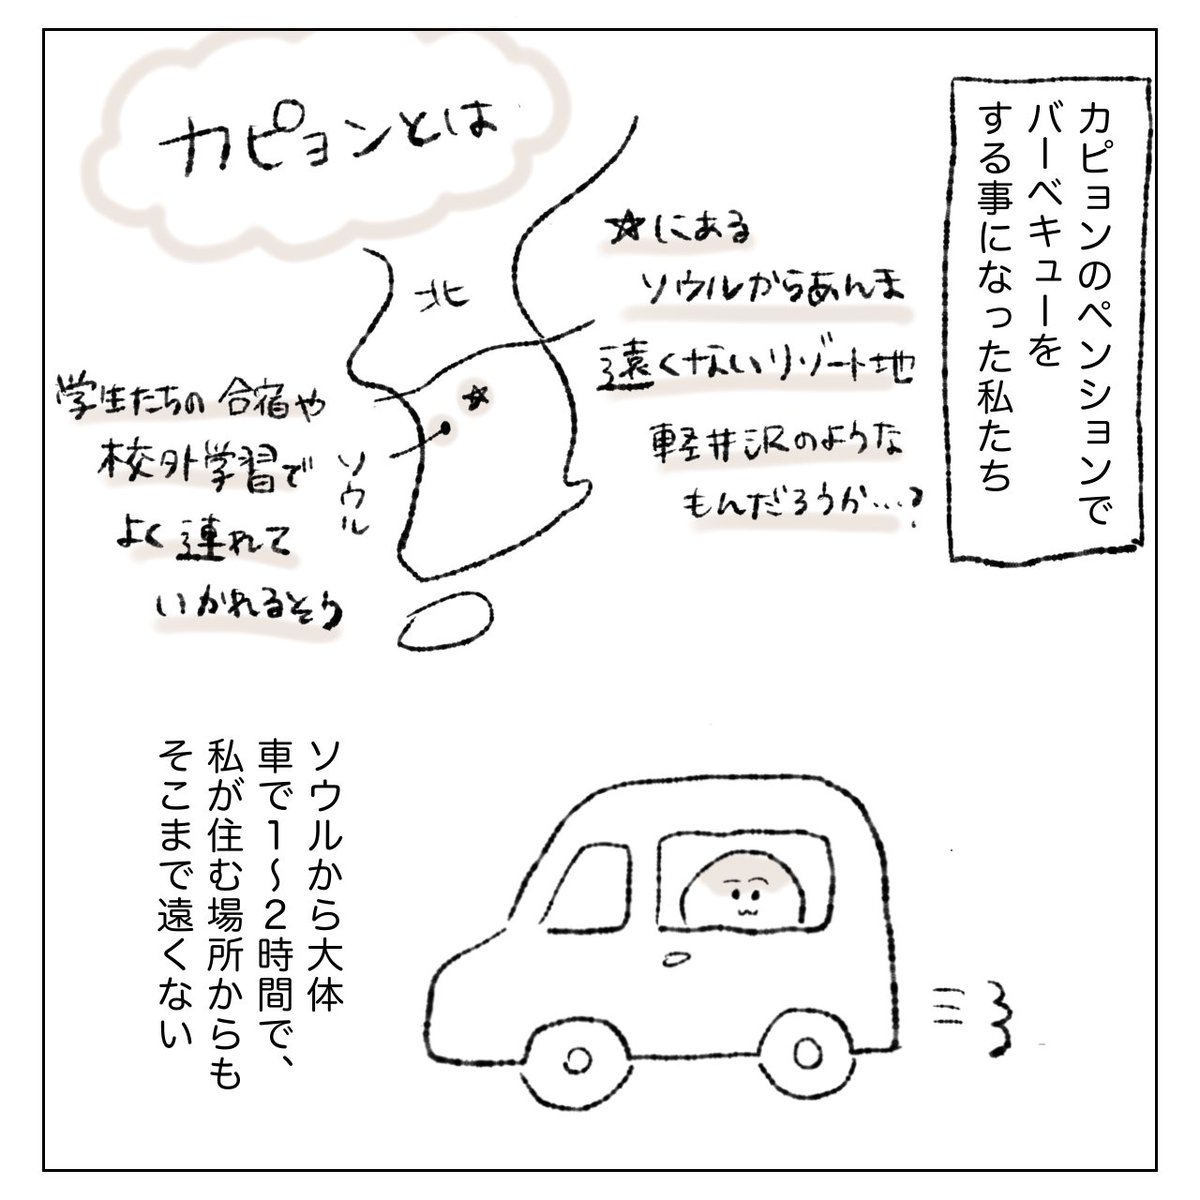 カピョンのペンションで
バーベキューを
する事になった私たち
カピョンとは
☆にある
ソウルからあんま
遠くないリゾート地
軽井沢のような
もんだろうか…?
北
ソウル
学生たちの合宿や
校外学習で
よく連れて
いかれるそう
ソウルから大体
車で1〜2時間で、
私が住む場所からも
そこまで遠くない